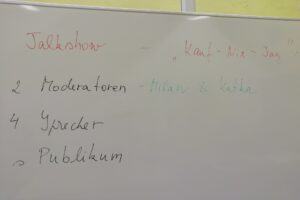 Talkshow - "Kauf-Nix-Tag"
2 Moderatoren - Milan & Katka
4 Sprecher
Publikum